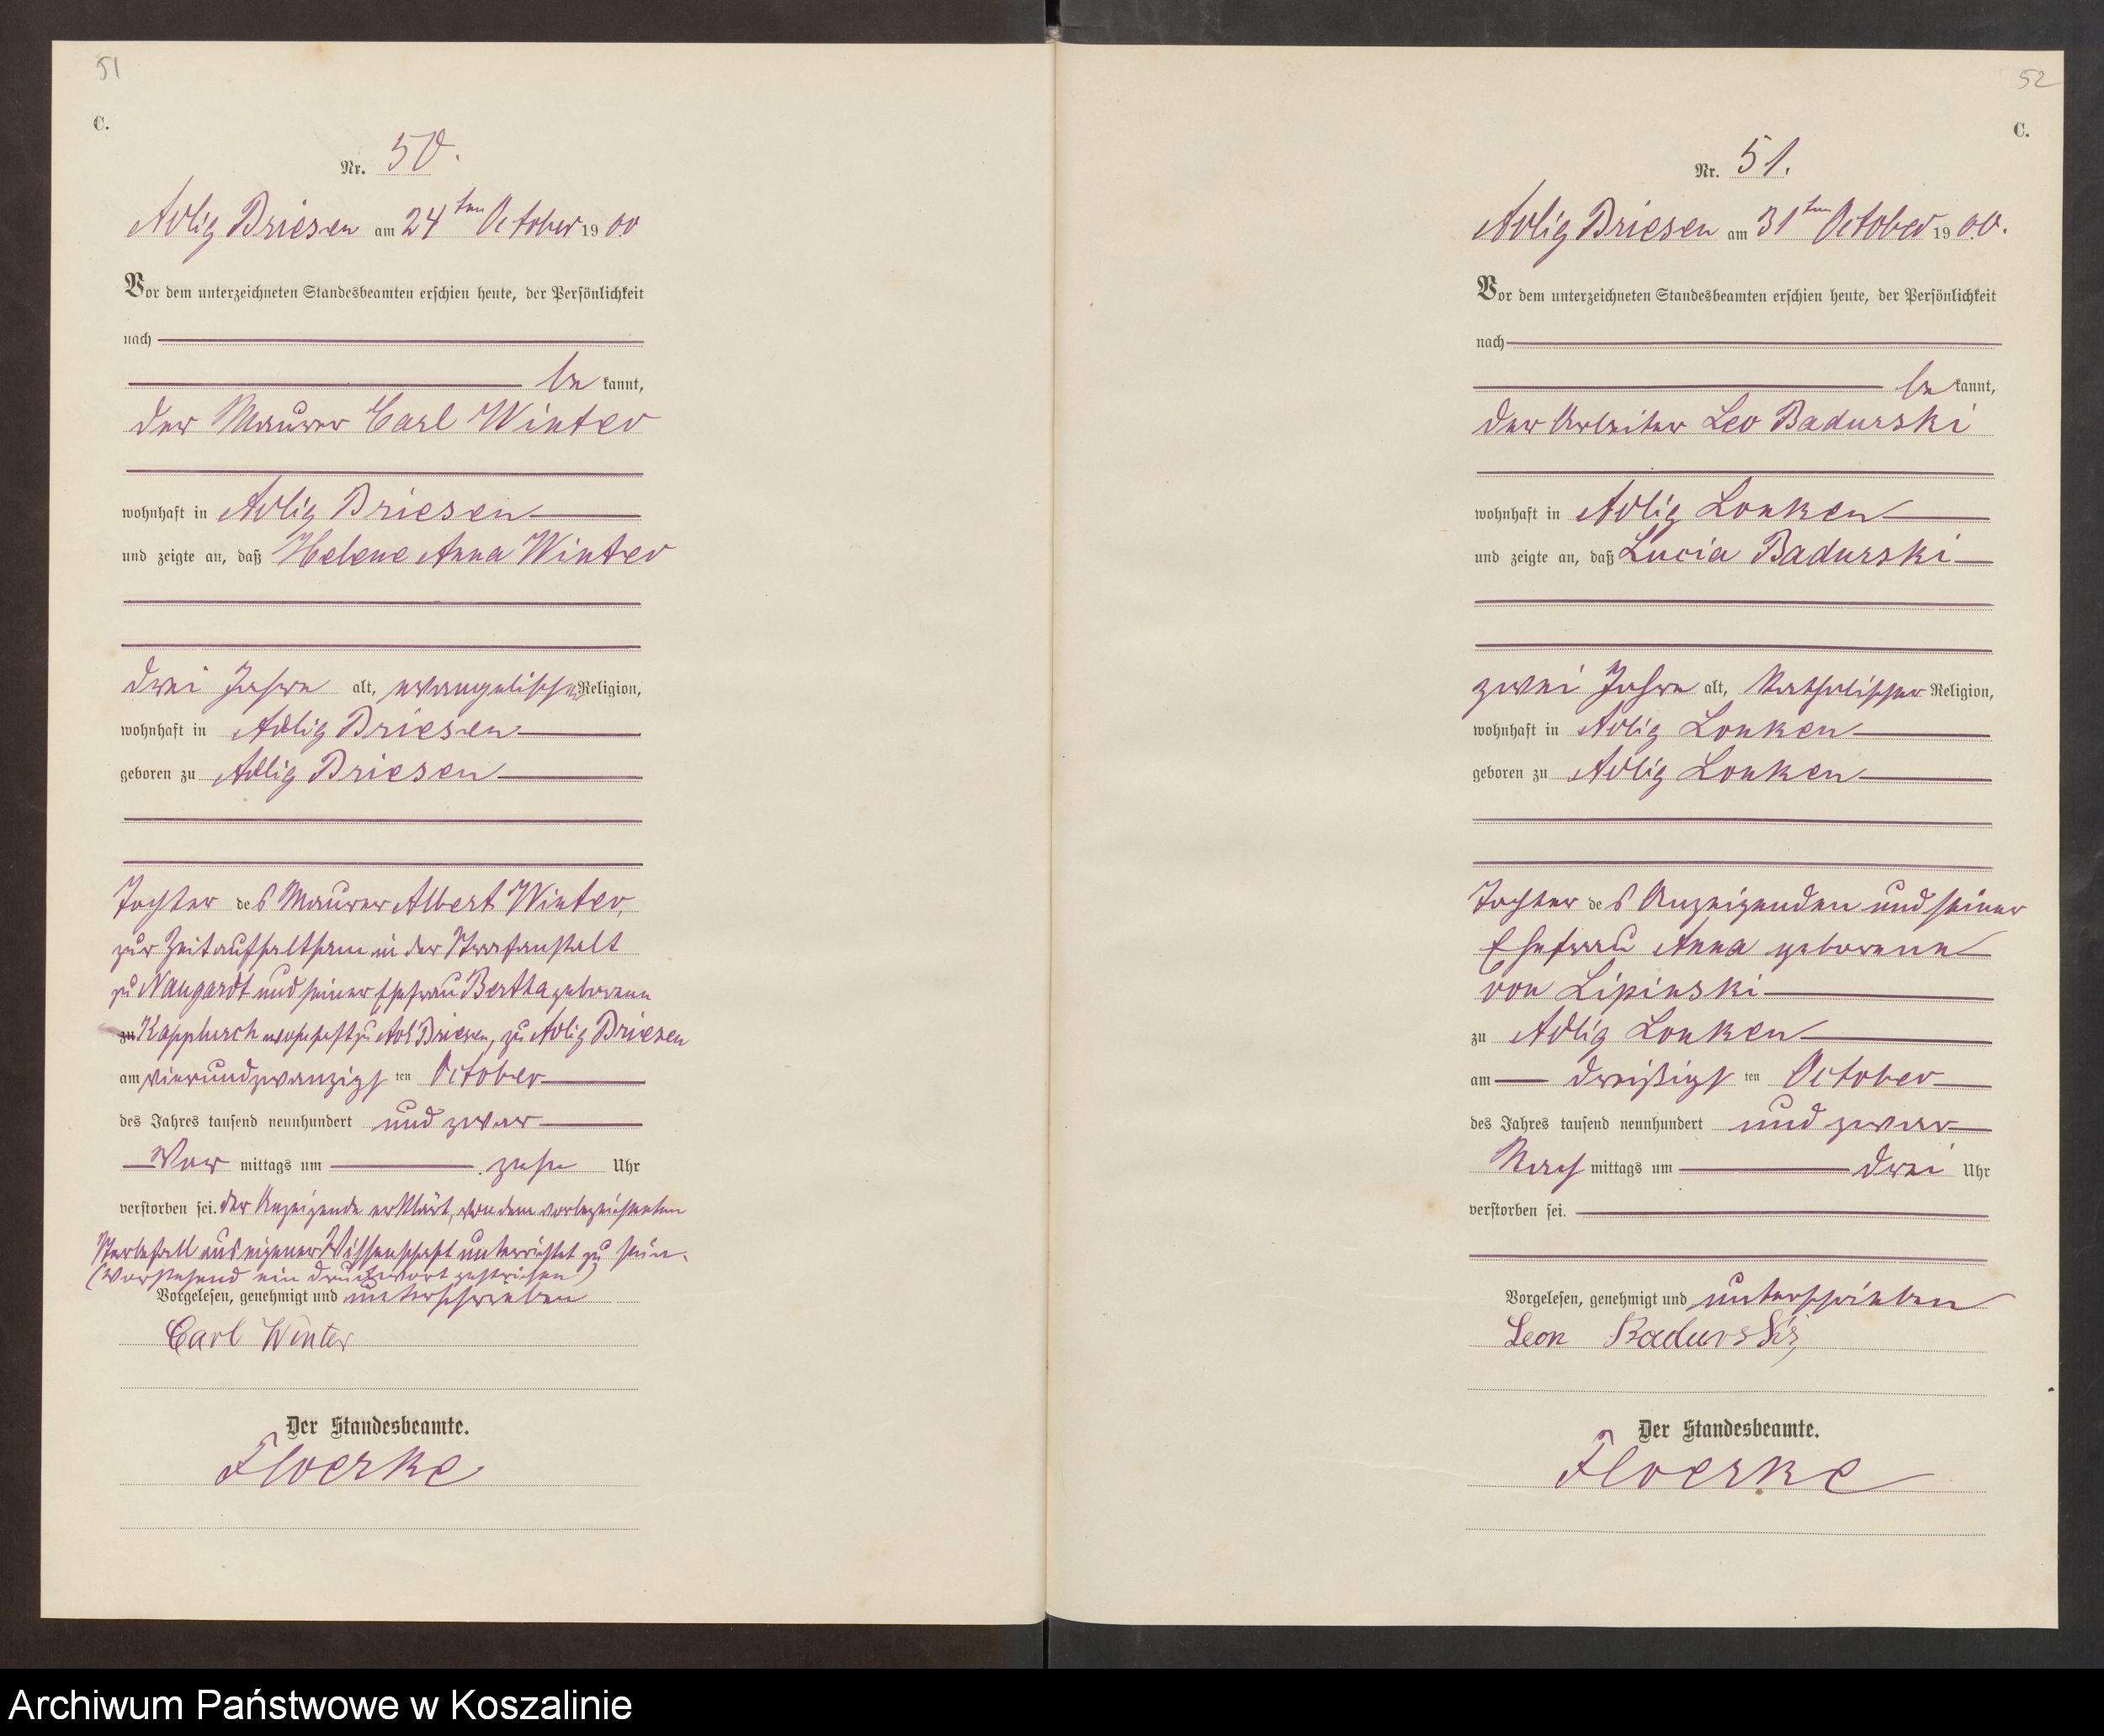 51
C.
Nr. 50.
Adlig Briesen am 24ten October 1900
Vor dem unterzeichneten Standesbeamten erschien heute, der Persönlichkeit
nach
be kannt,
der Maurer Carl Winter
wohnhaft in Adlig Briesen
und zeigte an, daß Helene Anna Winter
drei Jahre alt, evangelischer Religion,
wohnhaft in Adlig Briesen
geboren zu Adlig Briesen
Tochter des Maurer Albert Winter,
zur Zeit aufhaltsam in der Strafanstalt
zu Naugardt und seiner Ehefrau Bertha geborene
zu wohnhaft zu Adl Briesen, zu Adlig Briesen
am vierundzwanzigsten October
des Jahres tausend neunhundert und zwar
Vor mittags um zehn Uhr
verstorben sei. Der Anzeigende erklärt, von dem vorbezeichneten
Sterbefall aus eigener Wissenschaft unterrichtet zu sein.
(Vorstehend ein Druckwort gestrichen)
Vorgelesen, genehmigt und unterschrieben
Carl Winter
Der Standesbeamte.
Floerke
52
C.
Nr. 51.
Adlig Briesen am 31ten October 1900.
Vor dem unterzeichneten Standesbeamten erschien heute, der Persönlichkeit
nach
be kannt,
der Arbeiter Leo Badurski
wohnhaft in Adlig Lonken
und zeigte an, daß Lucia Badurski
zwei Jahre alt, katholischer Religion,
wohnhaft in Adlig Lonken
geboren zu Adlig Lonken
Tochter des Anzeigenden und seiner
Ehefrau Anna geborene
von Lipinski
zu Adlig Lonken
am dreißigsten October
des Jahres tausend neunhundert und zwar
Nach mittags um drei Uhr
verstorben sei.
Vorgelesen, genehmigt und unterschrieben
Leon Badurski
Der Standesbeamte.
Floerke
Archiwum Państwowe w Koszalinie